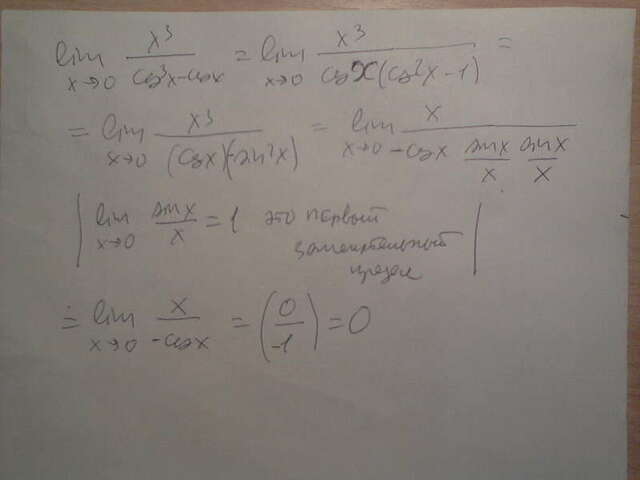 lim x→0 x³/(cos³x-cosx) = lim x→0 x³/(cosx(cos²x-1)) =
= lim x→0 x³/((cosx)(-sin²x)) = lim x→0 x/(-cosx sinx/x sinx/x)
| lim x→0 sinx/x = 1 это первый
замечательный
предел |
= lim x→0 x/(-cosx) = (0/-1) = 0